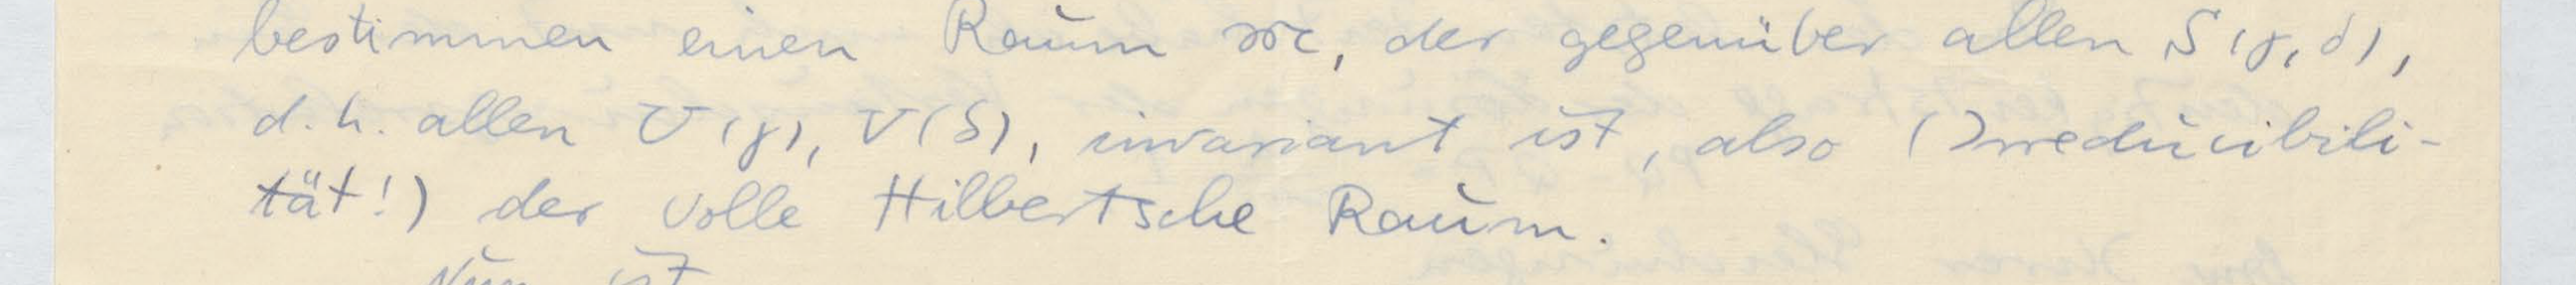 bestimmen einen Raum 𝔐, der gegenüber allen S(γ, δ),
d.h. allen U(γ), V(δ), invariant ist, also (Irreducibili-
tät!) der volle Hilbertsche Raum.
Nun ist